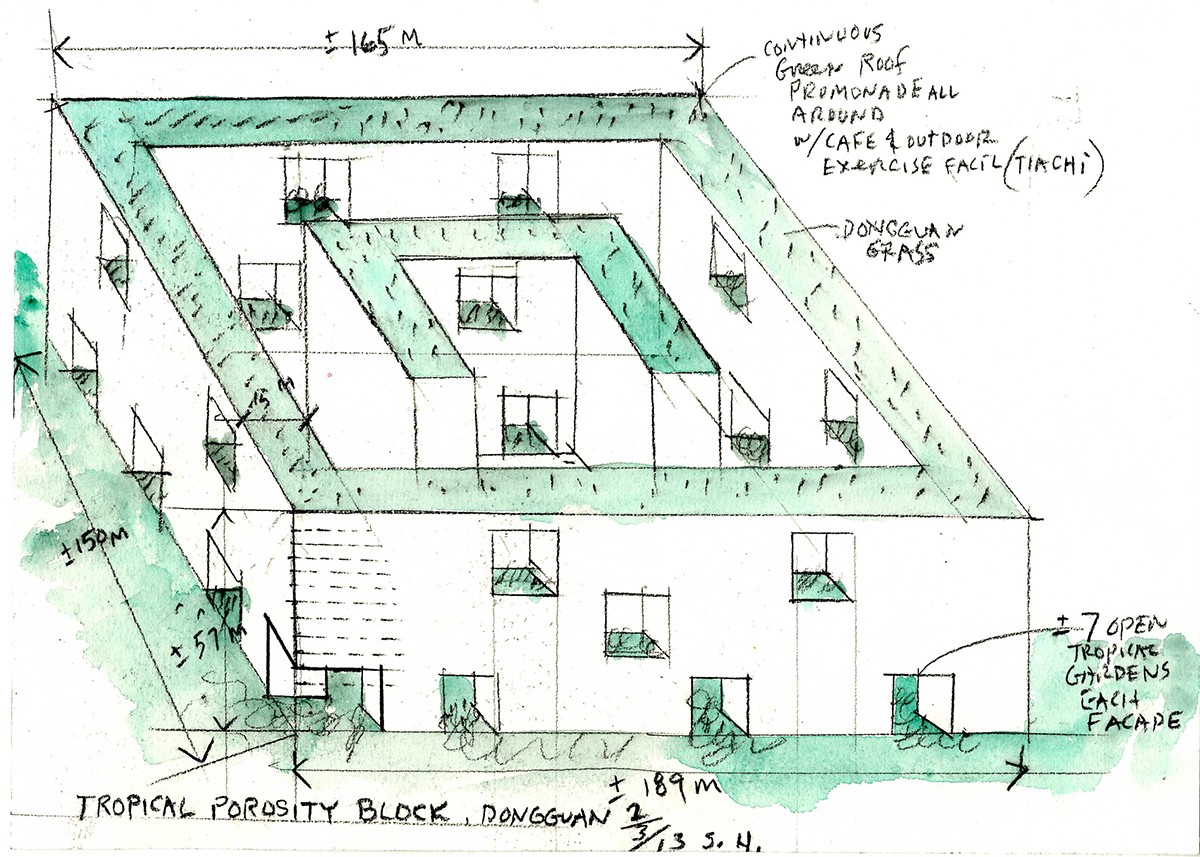 ± 165 M
CONTINUOUS
Green Roof
PROMONADE ALL
AROUND
W/ CAFE & OUTDOOR
EXERCISE FACIL (TIACHI)
DONGGUAN
GRASS
15 M
± 150 M
± 57 M
± 7 OPEN
TROPICAL
GARDENS
EACH
FACADE
± 189 M
TROPICAL POROSITY BLOCK, DONGGUAN 2/3/13 S.H.